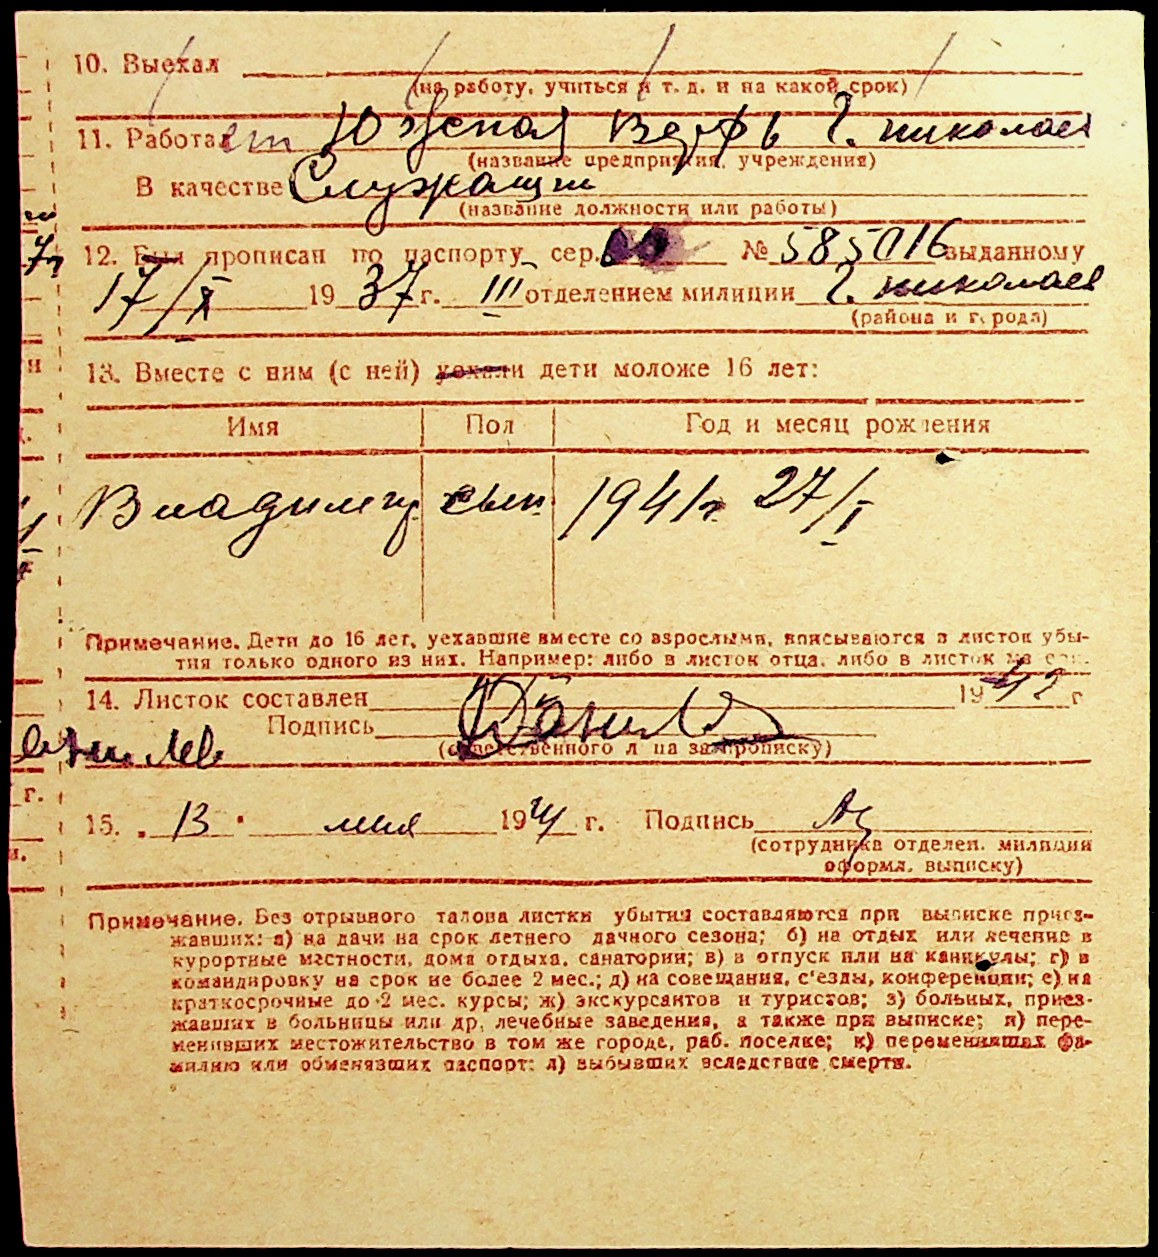 10. Выехал
(на работу, учиться и т. д. и на какой срок)
11. Работает Южная Верфь г. николаев
(название предприятия, учреждения)
В качестве Служащий
(название должности или работы)
12. Был прописан по паспорту сер. № 585016 выданному
17/X 1937 г. III отделением милиции г. николаев
(района и города)
13. Вместе с ним (с ней) уехали дети моложе 16 лет:
Имя Пол Год и месяц рождения
Владимир сын 1941 г 27/I
Примечание. Дети до 16 лет, уехавшие вместе со взрослыми, вписываются в листок убы-
тия только одного из них. Например: либо в листок отца, либо в листок
14. Листок составлен 1942 г
Подпись
(ответственного л па за прописку)
15. „13" мая 19 г. Подпись
(сотрудника отделен. милиции
оформл. выписку)
Примечание. Без отрывного талона листки убытия составляются при выписке приез-
жавших: а) на дачи на срок летнего дачного сезона; б) на отдых или лечение в
курортные местности, дома отдыха, санатории; в) в отпуск или на каникулы; г) в
командировку на срок не более 2 мес.; д) на совещания, с'езды, конференции; е) на
краткосрочные до 2 мес. курсы; ж) экскурсантов и туристов; з) больных, приез-
жавших в больницы или др. лечебные заведения, а также при выписке; и) пере-
менивших местожительство в том же городе, раб. поселке; к) переменивших фа-
милию или обменявших паспорт; л) выбывших вследствие смерти.